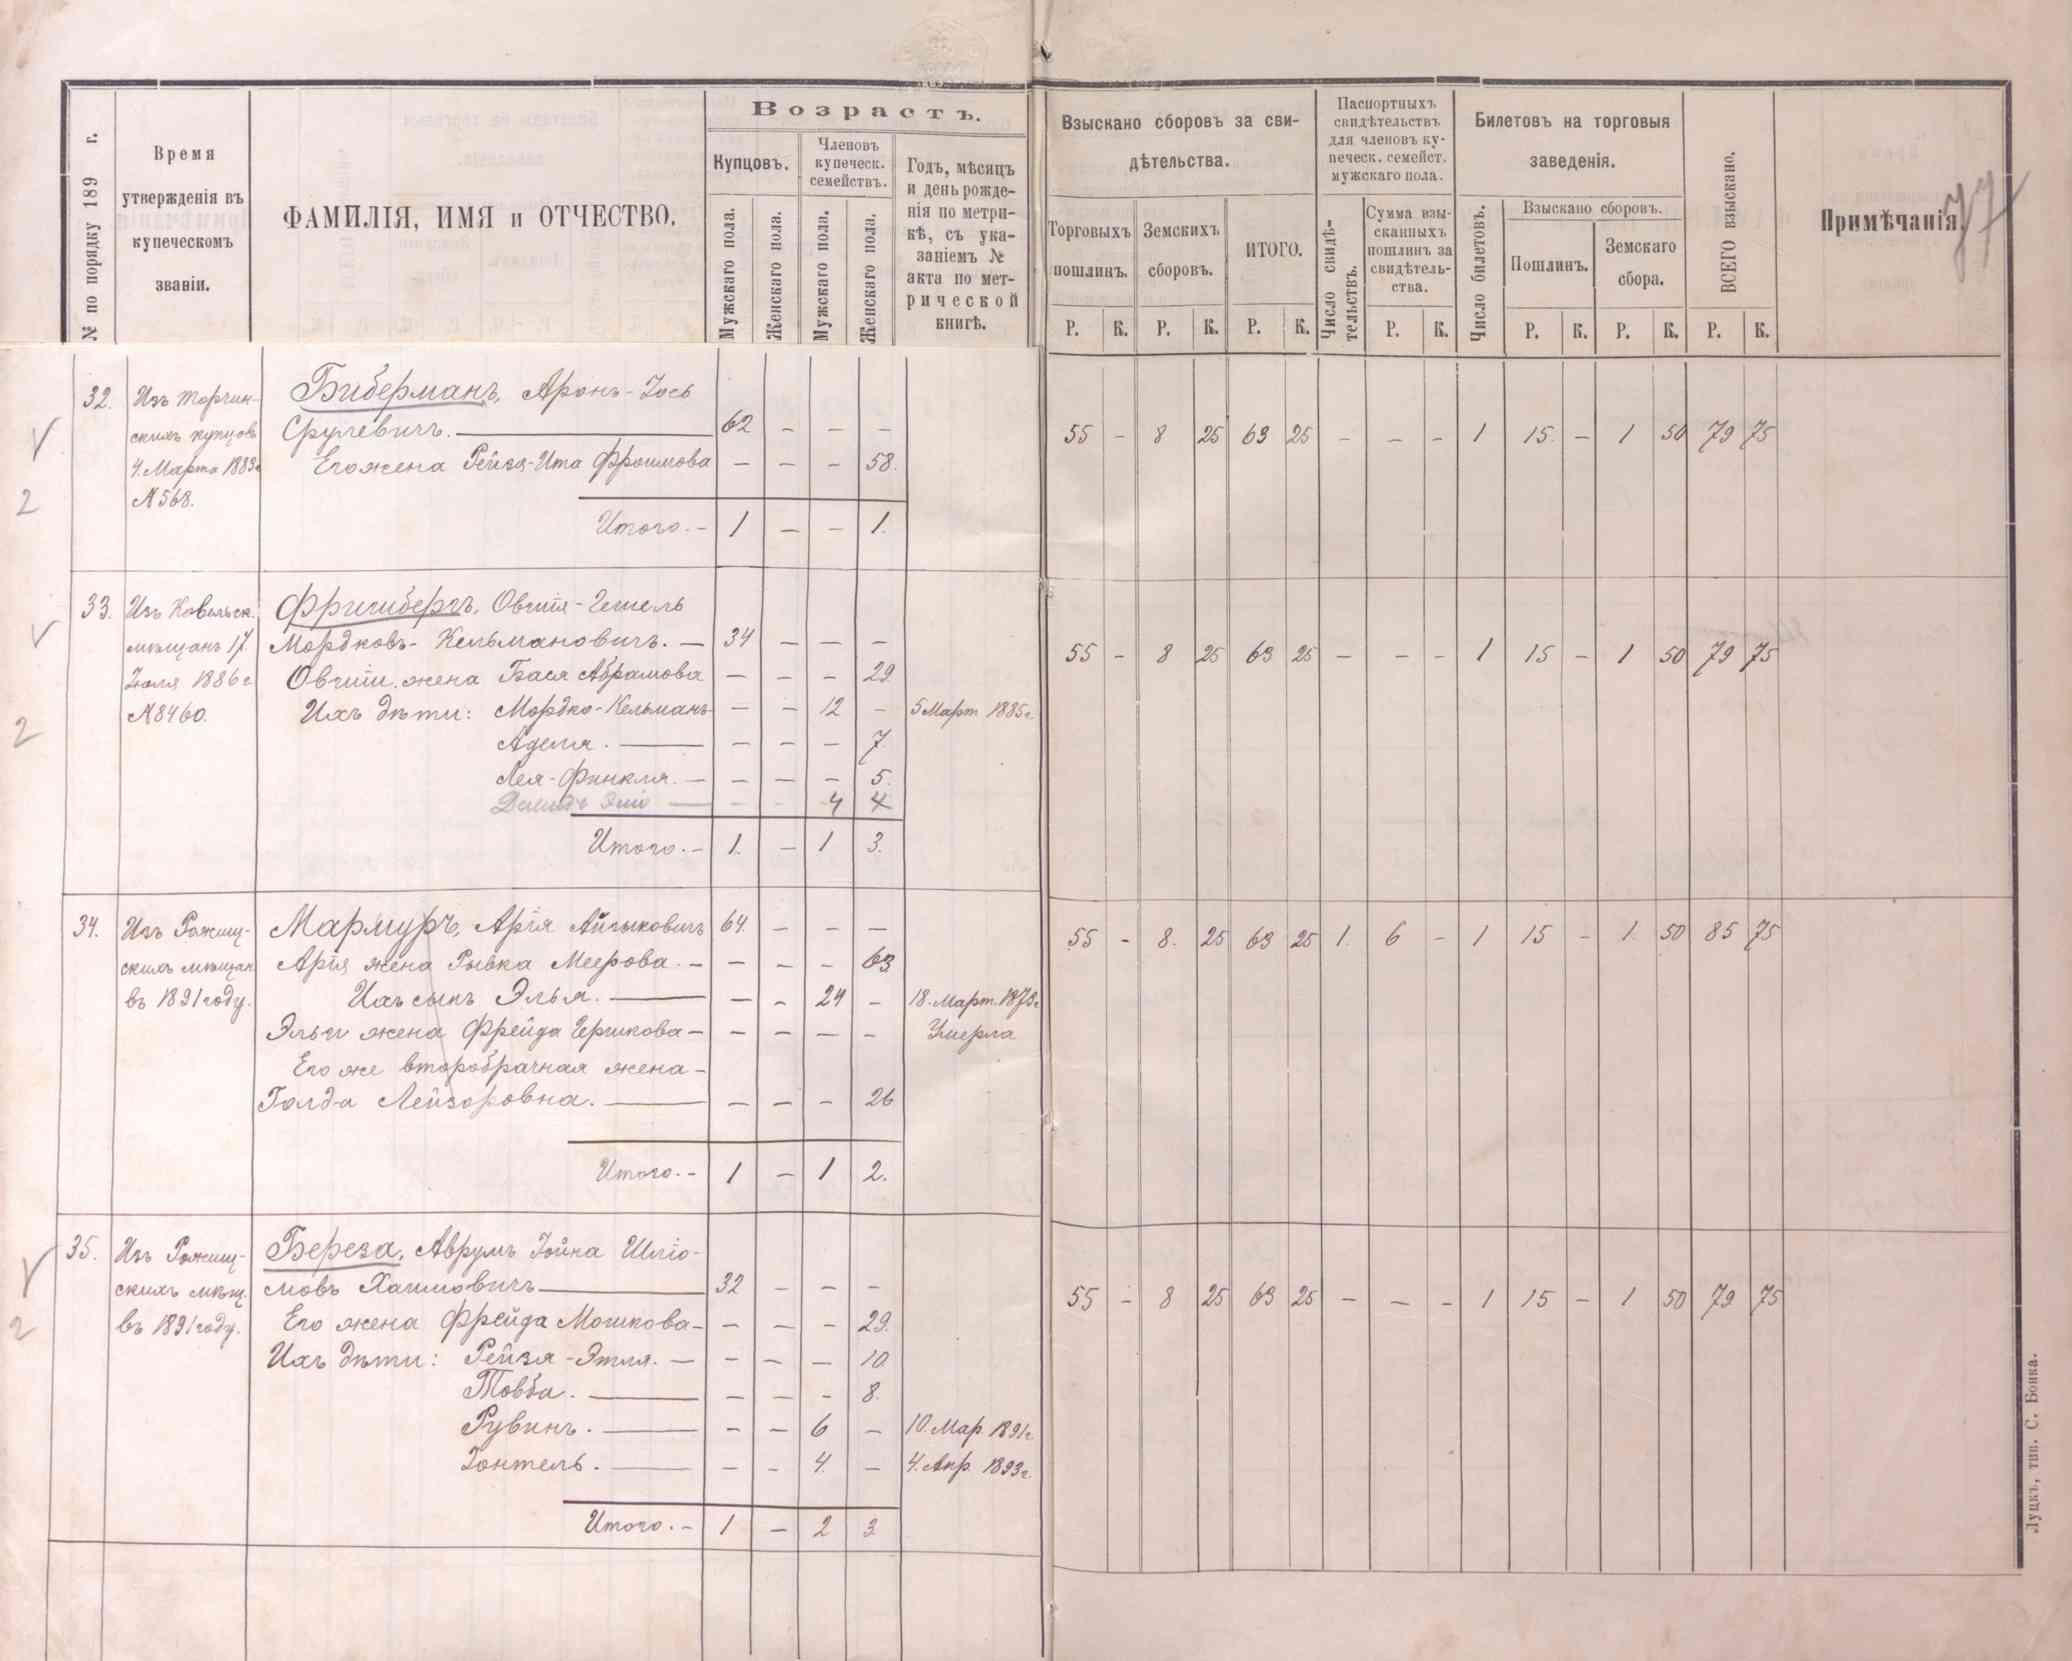 77
№ по порядку 189 г.
Время утвержденія въ купеческомъ званіи.
ФАМИЛІЯ, ИМЯ и ОТЧЕСТВО.
Возрастъ.
Купцовъ.
Мужскаго пола.
Женскаго пола.
Членовъ купеческ. семействъ.
Мужскаго пола.
Женскаго пола.
Годъ, мѣсяцъ и день рожденія по метрикѣ, съ указаніемъ № акта по метрической книгѣ.
Взыскано сборовъ за свидѣтельства.
Торговыхъ пошлинъ.
Земскихъ сборовъ.
ИТОГО.
Паспортныхъ свидѣтельствъ для членовъ купеческ. семейст. мужскаго пола.
Число свидѣтельствъ.
Сумма взысканныхъ пошлинъ за свидѣтельства.
Билетовъ на торговыя заведенія.
Число билетовъ.
Взыскано сборовъ.
Пошлинъ.
Земскаго сбора.
ВСЕГО взыскано.
Примѣчанія.
Р. К. Р. К. Р. К. Р. К. Р. К. Р. К. Р. К.
32. Изъ Торчин- Биберманъ, Аронъ-Іось
скихъ купцовъ Срулевичъ. 62 – – – 55 – 8 25 63 25 – – – 1 15 – 1 50 79 75
4 Марта 1883г Его жена Рейзя-Ита Фроимова – – – 58.
№ 568.
2
Итого. – 1 – – 1.
33. Изъ Ковельск. Фришбергъ, Овшія-Гешель
мѣщанъ 17 Мордковъ-Кельмановичъ. – 34 – – – 55 – 8 25 63 25 – – – 1 15 – 1 50 79 75
Іюля 1886 г Овшіи жена Бася Абрамова – – – 29.
№ 8460. Ихъ дѣти: Мордко-Кельманъ – – 12 – 5 Март 1885 г.
2
Аделя. – – – 7
Лея-Финкля. – – – – 5.
– – 4 4
Итого. – 1. – 1 3.
34. Изъ Рожищ- Мармуръ, Арія Айзыковичъ 64. – – – 55 – 8. 25 63 25 1. 6 – 1 15 – 1. 50 85 75
скихъ мѣщан Арія жена Рывка Меерова. – – – – 63
въ 1891 году. Ихъ сынъ Элья. – – 24 – 18. Март. 1873г
Эльи жена Фрейда Гершкова – – – – – Умерла
Его же второбрачная жена –
Голда Лейзоровна. – – – 26
Итого. – 1 – 1 2.
35. Изъ Рожищ- Береза, Аврумъ Іойна Шліо-
скихъ мѣщ. мовъ Хаимовичъ 32 – – – 55 – 8 25 63 25 – – – 1 15 – 1 50 79 75
въ 1891 году. Его жена Фрейда Мошкова – – – – 29.
2
Ихъ дѣти: Рейзя-Этля. – – – – 10
Товба. – – – 8.
Рувинъ. – – 6 – 10. Мар. 1891г
Іонтель. – – 4. – 4. Апр. 1893г.
Итого. – 1 – 2 3
Луцкъ, тип. С. Бонка.